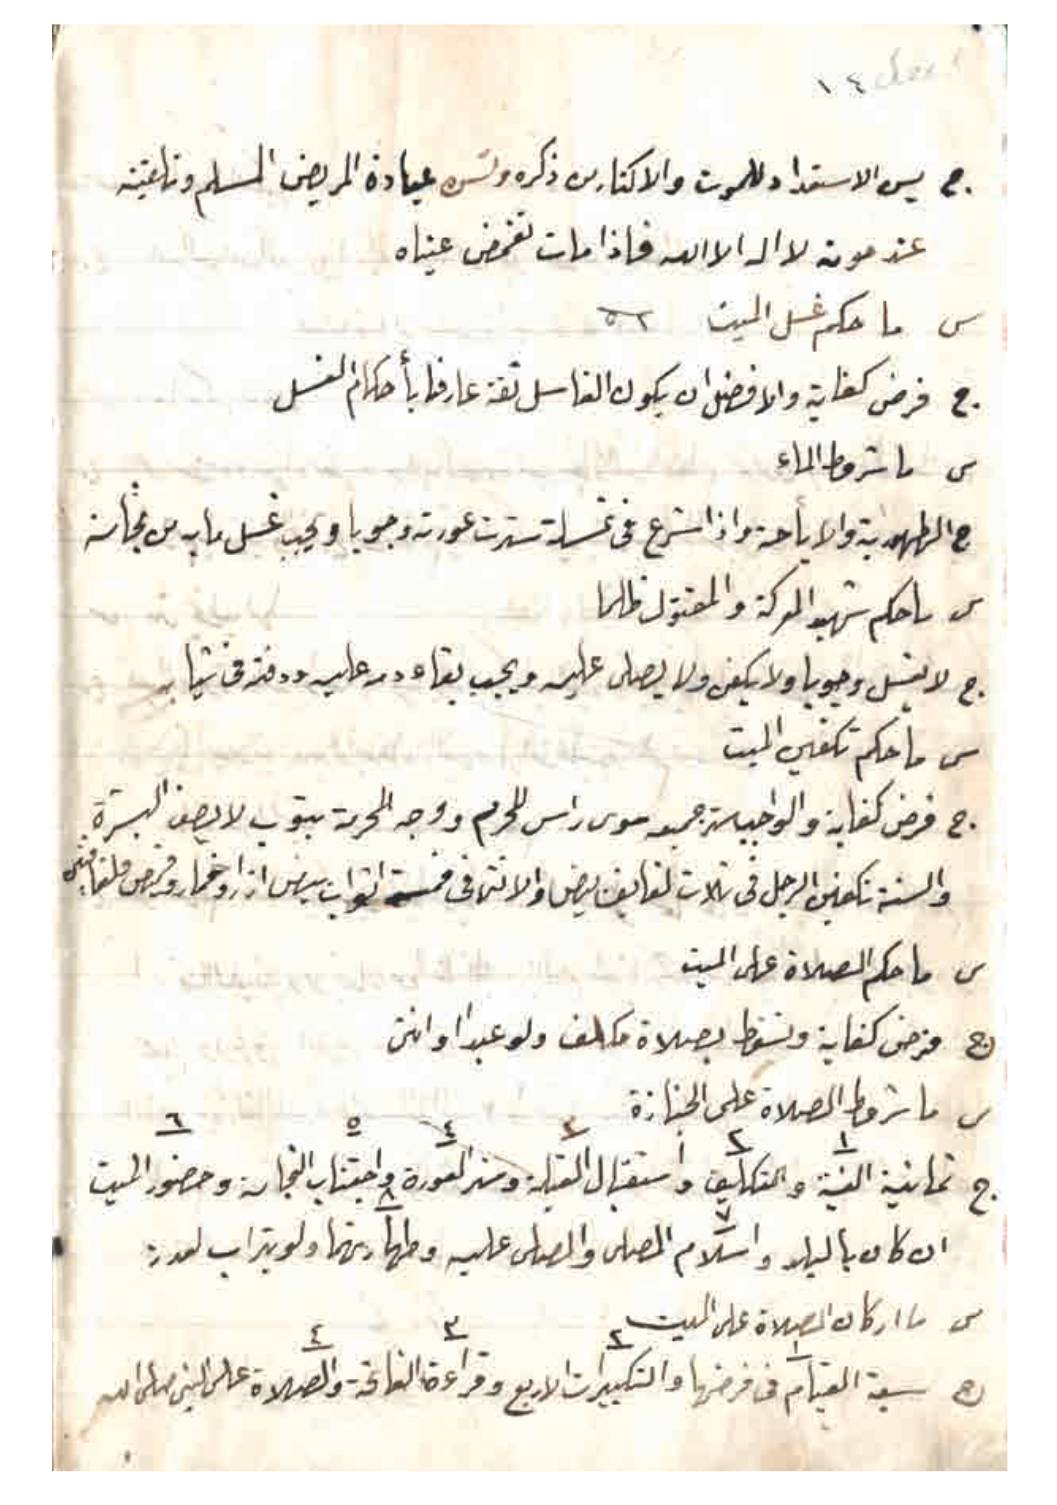 ١٤
ج. يسن الاستعداد للموت والاكثار من ذكره وتسن عيادة المريض المسلم وتلقينه
عند موته لا اله الا الله فاذا مات تغمض عيناه
س ما حكم غسل الميت
ج. فرض كفاية والافضل ان يكون الغاسل ثقة عارفا بأحكام الغسل
س ما شروط الماء
ج الطهورية والاباحة واذا شرع في غسله سترت عورته وجوبا ويجب غسل ما به من نجاسة
س ما حكم شهيد المعركة والمقتول ظلما
ج. لا يغسل وجوبا ولا يكفن ولا يصلى عليه ويجب بقاء دمه عليه ودفنه في ثيابه
س ما حكم تكفين الميت
ج. فرض كفاية والواجب ستر جميعه سوى راس المحرم ووجه المحرمة بثوب لا يصف البشرة
والسنة تكفين الرجل في ثلاث لفايف بيض والانثى في خمسة اثواب بيض ازار وخمار وقميص ولفافتين
س ما حكم الصلاة على الميت
ج فرض كفاية وتسقط بصلاة مكلف ولو عبدا او انثى
س ما شروط الصلاة على الجنازة
١ ٢ ٣ ٤ ٥ ٦
ج. ثمانية النية والتكليف واستقبال القبلة وستر العورة واجتناب النجاسة وحضور الميت
٧ ٨
ان كان بالبلد واسلام المصلي والمصلى عليه وطهارتهما ولو بتراب لعذر
س ما اركان الصلاة على الميت
١ ٢ ٣ ٤
ج سبعة القيام في فرضها والتكبيرات الاربع وقراءة الفاتحة والصلاة على النبي صلى الله